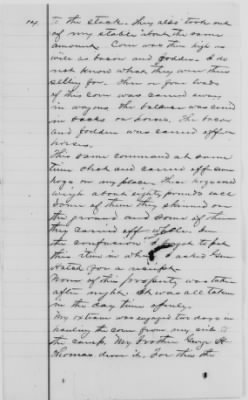 to the stack. They also took out
of my stables about the same
amount. Corn was then high as
well as bacon and fodder. I do
not know what they were then
selling for. Three or four loads
of this corn was carried away
in wagons. The balance was carried
in sacks on horses. The bacon
and fodder was carried off on
horses.
This same command at same
time shot and carried off some
hogs on my place. These hogs would
weigh about eighty pounds each
Some of them they skinned on
the ground and some of them
they carried off whole. In
the confusion I forgot to put
this item in when I asked Gen
for a receipt.
None of this property was taken
after night. It was all taken
in the day time openly.
My ox team was engaged two days in
hauling the corn from my crib to
the camp. My brother George H
Thomas drove it. For this the